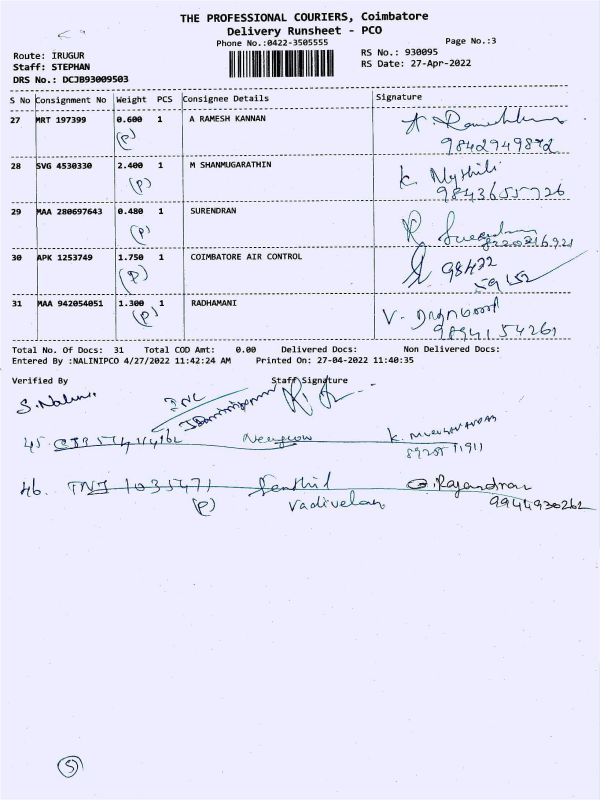 THE PROFESSIONAL COURIERS, Coimbatore
Delivery Runsheet - PCO
Phone No.:0422-3505555
Page No.:3
Route: IRUGUR
RS No.: 930095
Staff: STEPHAN
RS Date: 27-Apr-2022
DRS No.: DCJB93009503
S No Consignment No Weight PCS Consignee Details Signature
27 MRT 197399 0.600 1 A RAMESH KANNAN
(P) 9842949872
28 SVG 4530330 2.400 1 M SHANMUGARATHIN K. Mythili
(P) 9843655726
29 MAA 280697643 0.480 1 SURENDRAN
(P)
30 APK 1253749 1.750 1 COIMBATORE AIR CONTROL 98422
(P) 59152
31 MAA 942054051 1.300 1 RADHAMANI
(P) 9894154261
Total No. Of Docs: 31 Total COD Amt: 0.00 Delivered Docs: Non Delivered Docs:
Entered By :NALINIPCO 4/27/2022 11:42:24 AM Printed On: 27-04-2022 11:40:35
Verified By Staff Signature
S. Nalini
45.
46. TNJ 1035471 Senthil G. Rajandran
(P) Vadivelan 9944930262
5